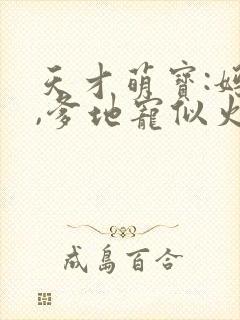 天才萌寶:
,爹地寵似火
成島百合